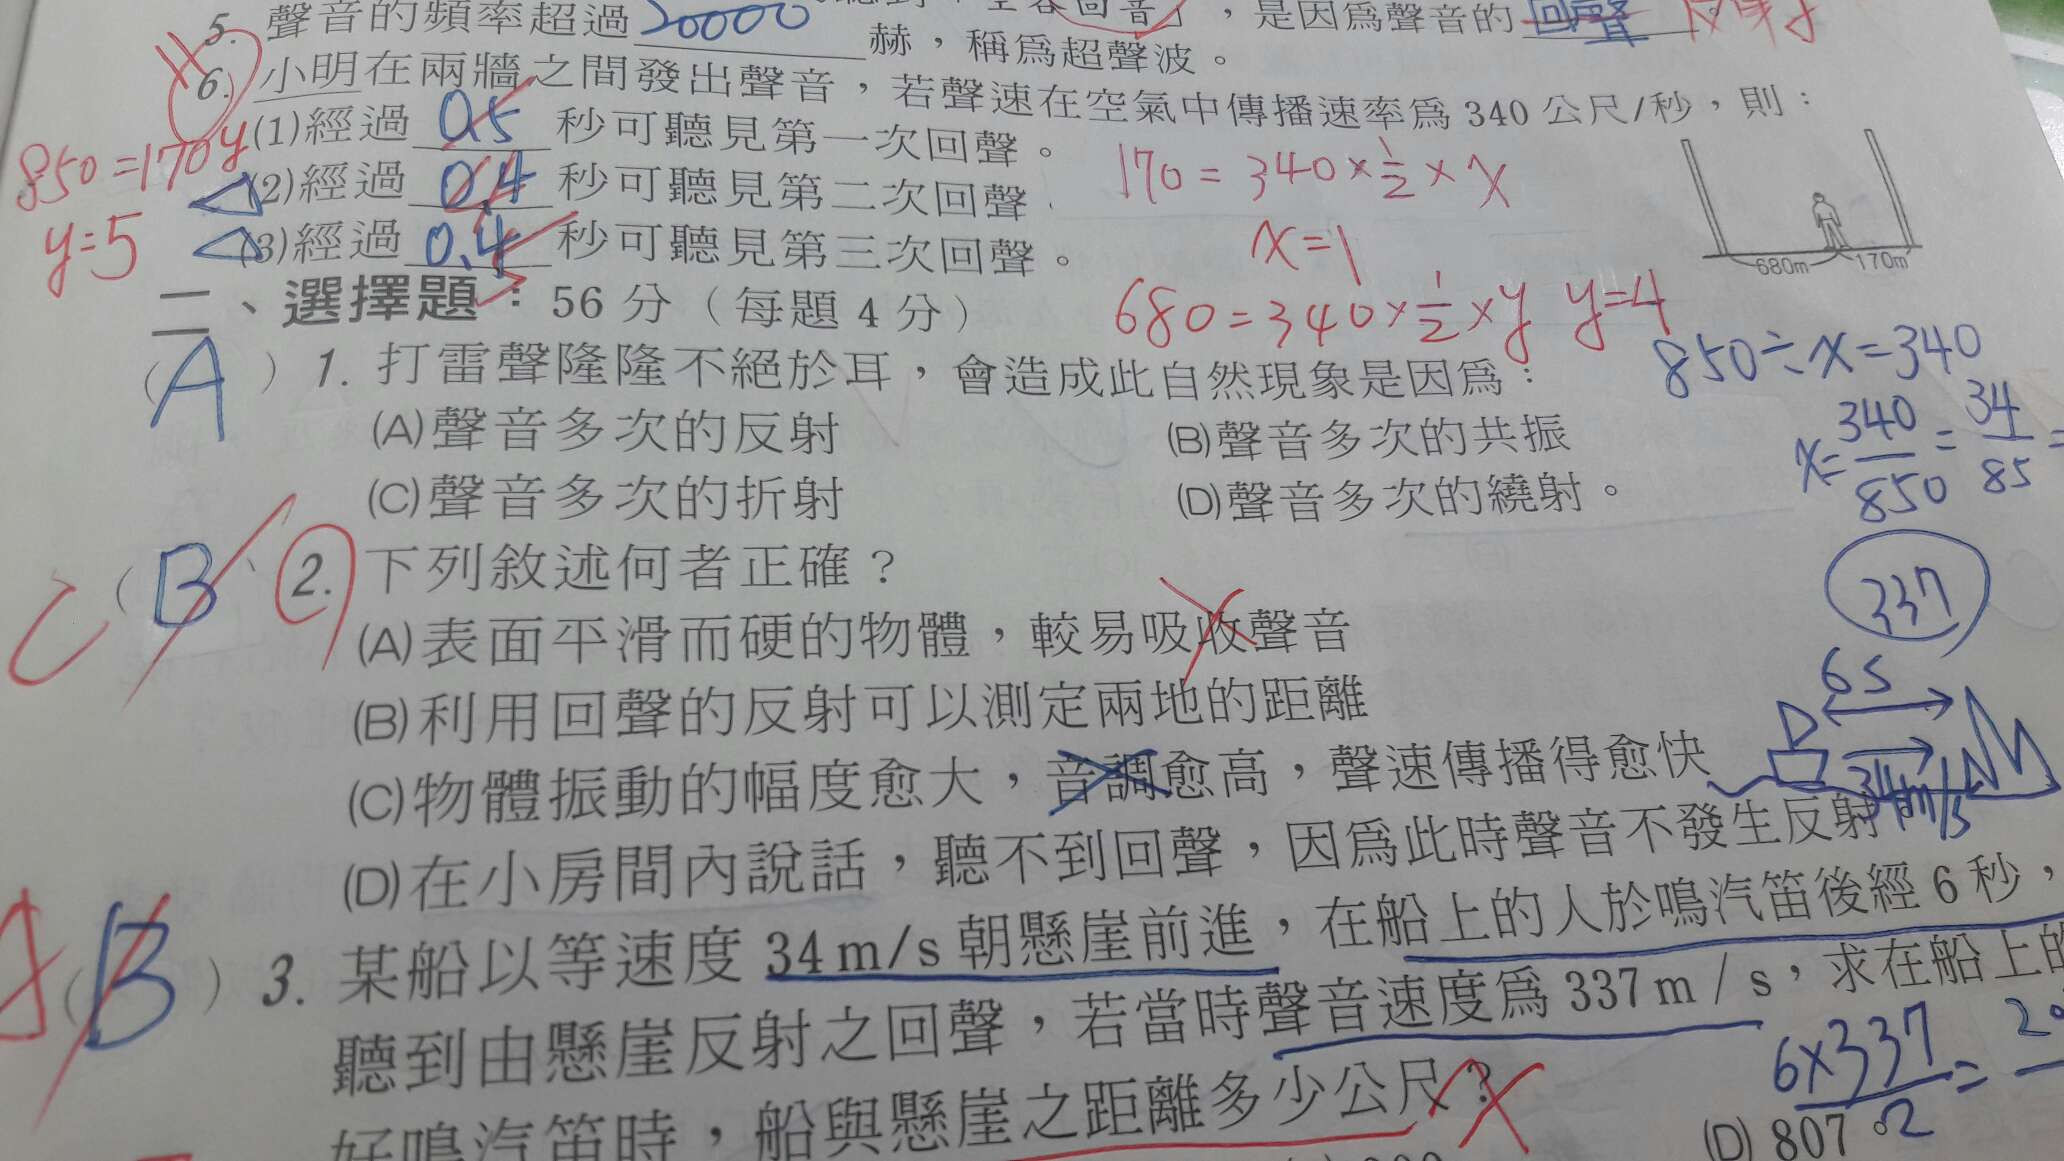 5. 聲音的頻率超過 20000 赫，稱為超聲波。
，是因為聲音的 回聲
6. 小明在兩牆之間發出聲音，若聲速在空氣中傳播速率為 340 公尺/秒，則：
(1)經過 0.5 秒可聽見第一次回聲。
(2)經過 0.4 秒可聽見第二次回聲
(3)經過 0.4 秒可聽見第三次回聲。
5
850=170y
y=5
170 = 340 × 1/2 × x
x=1
680 = 340 × 1/2 × y y=4
680m 170m
二、選擇題：56 分（每題 4 分）
(A) 1. 打雷聲隆隆不絕於耳，會造成此自然現象是因為：
(A)聲音多次的反射 (B)聲音多次的共振
(C)聲音多次的折射 (D)聲音多次的繞射。
850÷x=340
x= 340/850 = 34/85 =
C (B) 2. 下列敘述何者正確？
(A)表面平滑而硬的物體，較易吸收聲音
(B)利用回聲的反射可以測定兩地的距離
(C)物體振動的幅度愈大，音調愈高，聲速傳播得愈快
(D)在小房間內說話，聽不到回聲，因為此時聲音不發生反射
337
6s
34m/s
(B) 3. 某船以等速度 34 m/s 朝懸崖前進，在船上的人於鳴汽笛後經 6 秒，
聽到由懸崖反射之回聲，若當時聲音速度為 337 m / s，求在船上的
好鳴汽笛時，船與懸崖之距離多少公尺？
6×337/2 =
(D) 807。